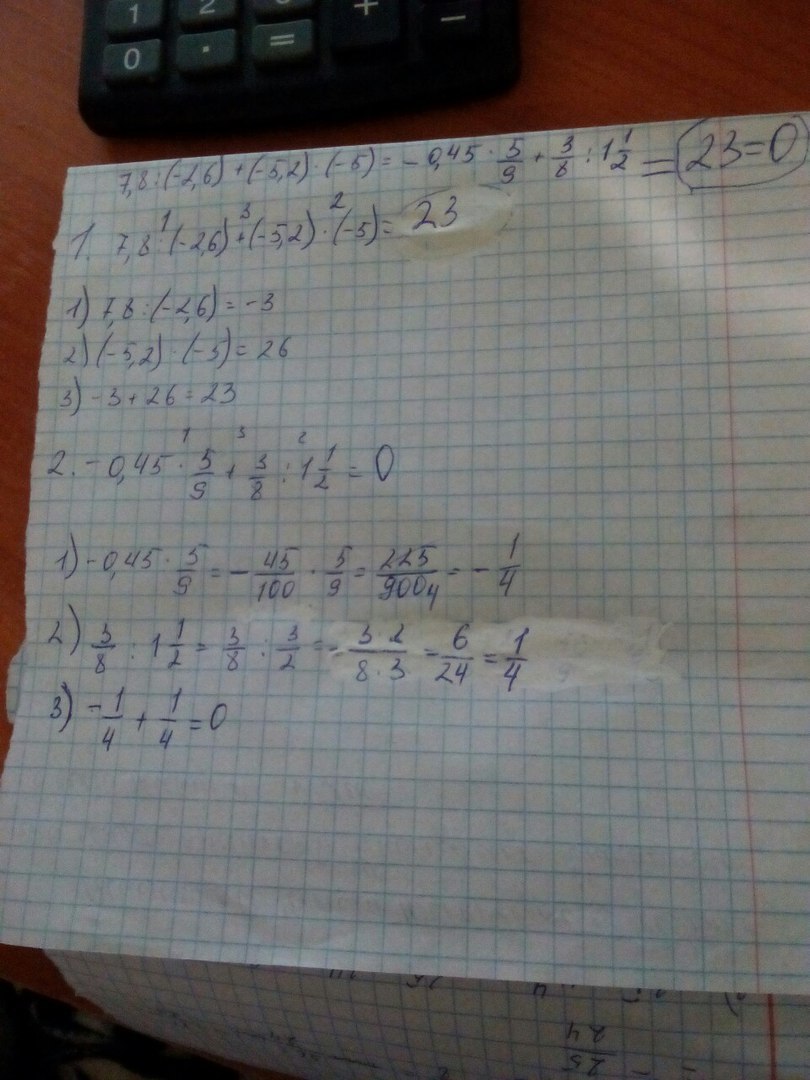 1 2 3 + −
0 . =
7,8 : (-2,6) + (-5,2) · (-5) = - 0,45 · 5/9 + 3/8 : 1 1/2 = 23=0
1 3 2
1. 7,8 : (-2,6) + (-5,2) · (-5) = 23
1) 7,8 : (-2,6) = -3
2) (-5,2) · (-5) = 26
3) -3 + 26 = 23
1 3 2
2. - 0,45 · 5/9 + 3/8 : 1 1/2 = 0
1) - 0,45 · 5/9 = - 45/100 · 5/9 = 225/900 4 = - 1/4
2) 3/8 : 1 1/2 = 3/8 : 3/2 = 3·2/8·3 = 6/24 = 1/4
3) - 1/4 + 1/4 = 0
25/24